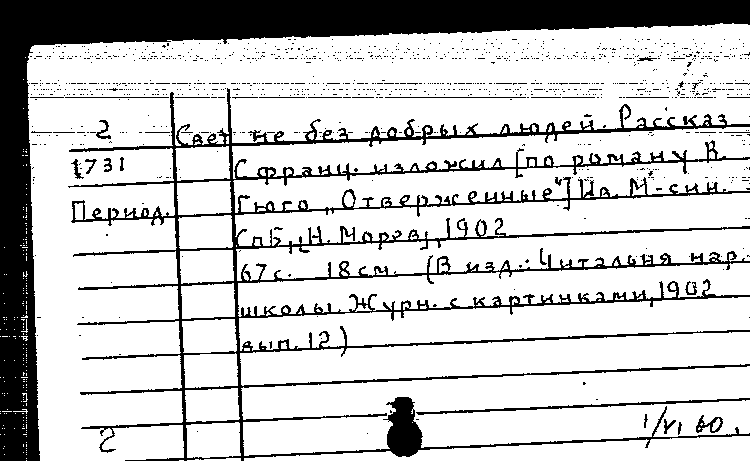 2 Свет не без добрых людей. Рассказ
1731 С франц. изложил [по роману В.
Период. Гюго „Отверженные"] Ив. М-син.
СПБ, [Н. Морев], 1902
67с. 18см. (В изд.: Читальня нар.
школы. Журн. с картинками, 1902
вып. 12)
2 1/VI 60.